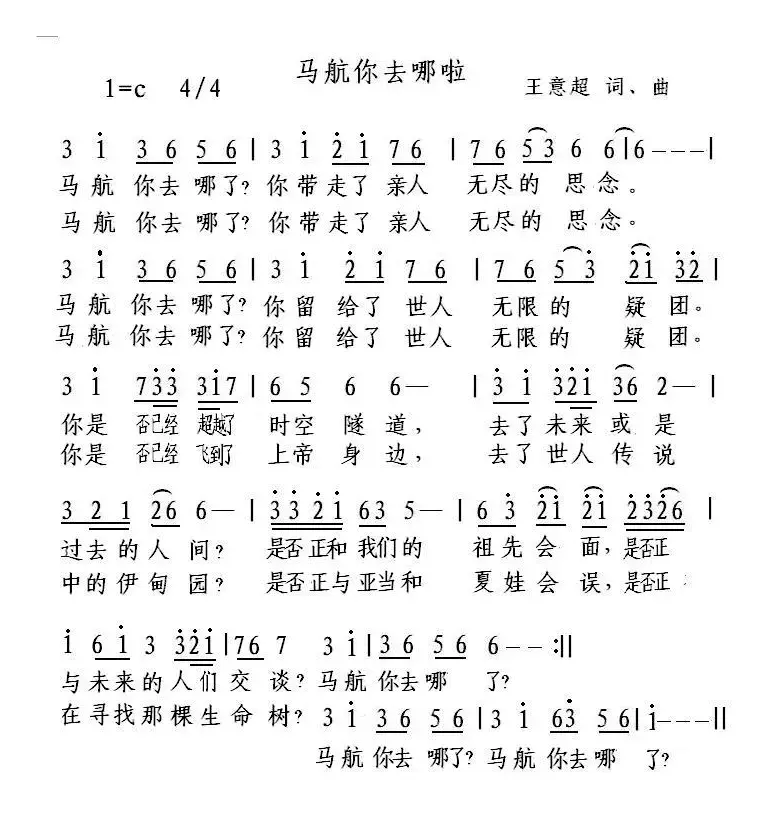 马航你去哪啦
1=c 4/4 王意超 词、曲
3 i̇ 3 6 5 6 | 3 i̇ 2̇ i̇ 7 6 | 7 6 5 3 6 6 | 6 - - - |
马航 你去 哪了? 你带走了亲人 无尽的 思念。
马航 你去 哪了? 你带走了亲人 无尽的 思念。
3 i̇ 3 6 5 6 | 3 i̇ 2̇ i̇ 7 6 | 7 6 5 3̇ 2̇ i̇ 3̇ 2̇ |
马航 你去 哪了? 你留 给了 世人 无限的 疑团。
马航 你去 哪了? 你留 给了 世人 无限的 疑团。
3 i̇ 7 3̇ 3̇ 3̇ i̇ 7 | 6 5 6 6 — | 3̇ i̇ 3̇ 2̇ i̇ 3̇ 6 2 — |
你是 否已经 超越了 时空 隧道, 去了未来或是
你是 否已经 飞到了 上帝 身边, 去了世人传说
3 2 1 2̇ 6 6 — | 3̇ 3̇ 2̇ i̇ 6 3 5 — | 6 3̇ 2̇ i̇ 2̇ i̇ 2̇ 3̇ 2̇ 6 |
过去的人 间? 是否正和我们的 祖先会 面, 是否正
中的伊甸 园? 是否正与亚当和 夏娃会 误, 是否正
i̇ 6 i̇ 3 3̇ 2̇ i̇ | 7 6 7 3 i̇ | 3 6 5 6 6 - - :||
与未来的人们交 谈? 马航 你去哪 了?
在寻找那棵生命 树? 3 i̇ 3 6 5 6 | 3 i̇ 6 3̇ 5 6 | i̇ - - - ||
马航 你去 哪了? 马航 你去哪 了?